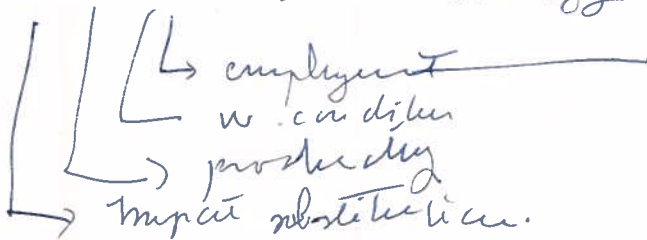 employment
w. condition
productivity
Import substitution.